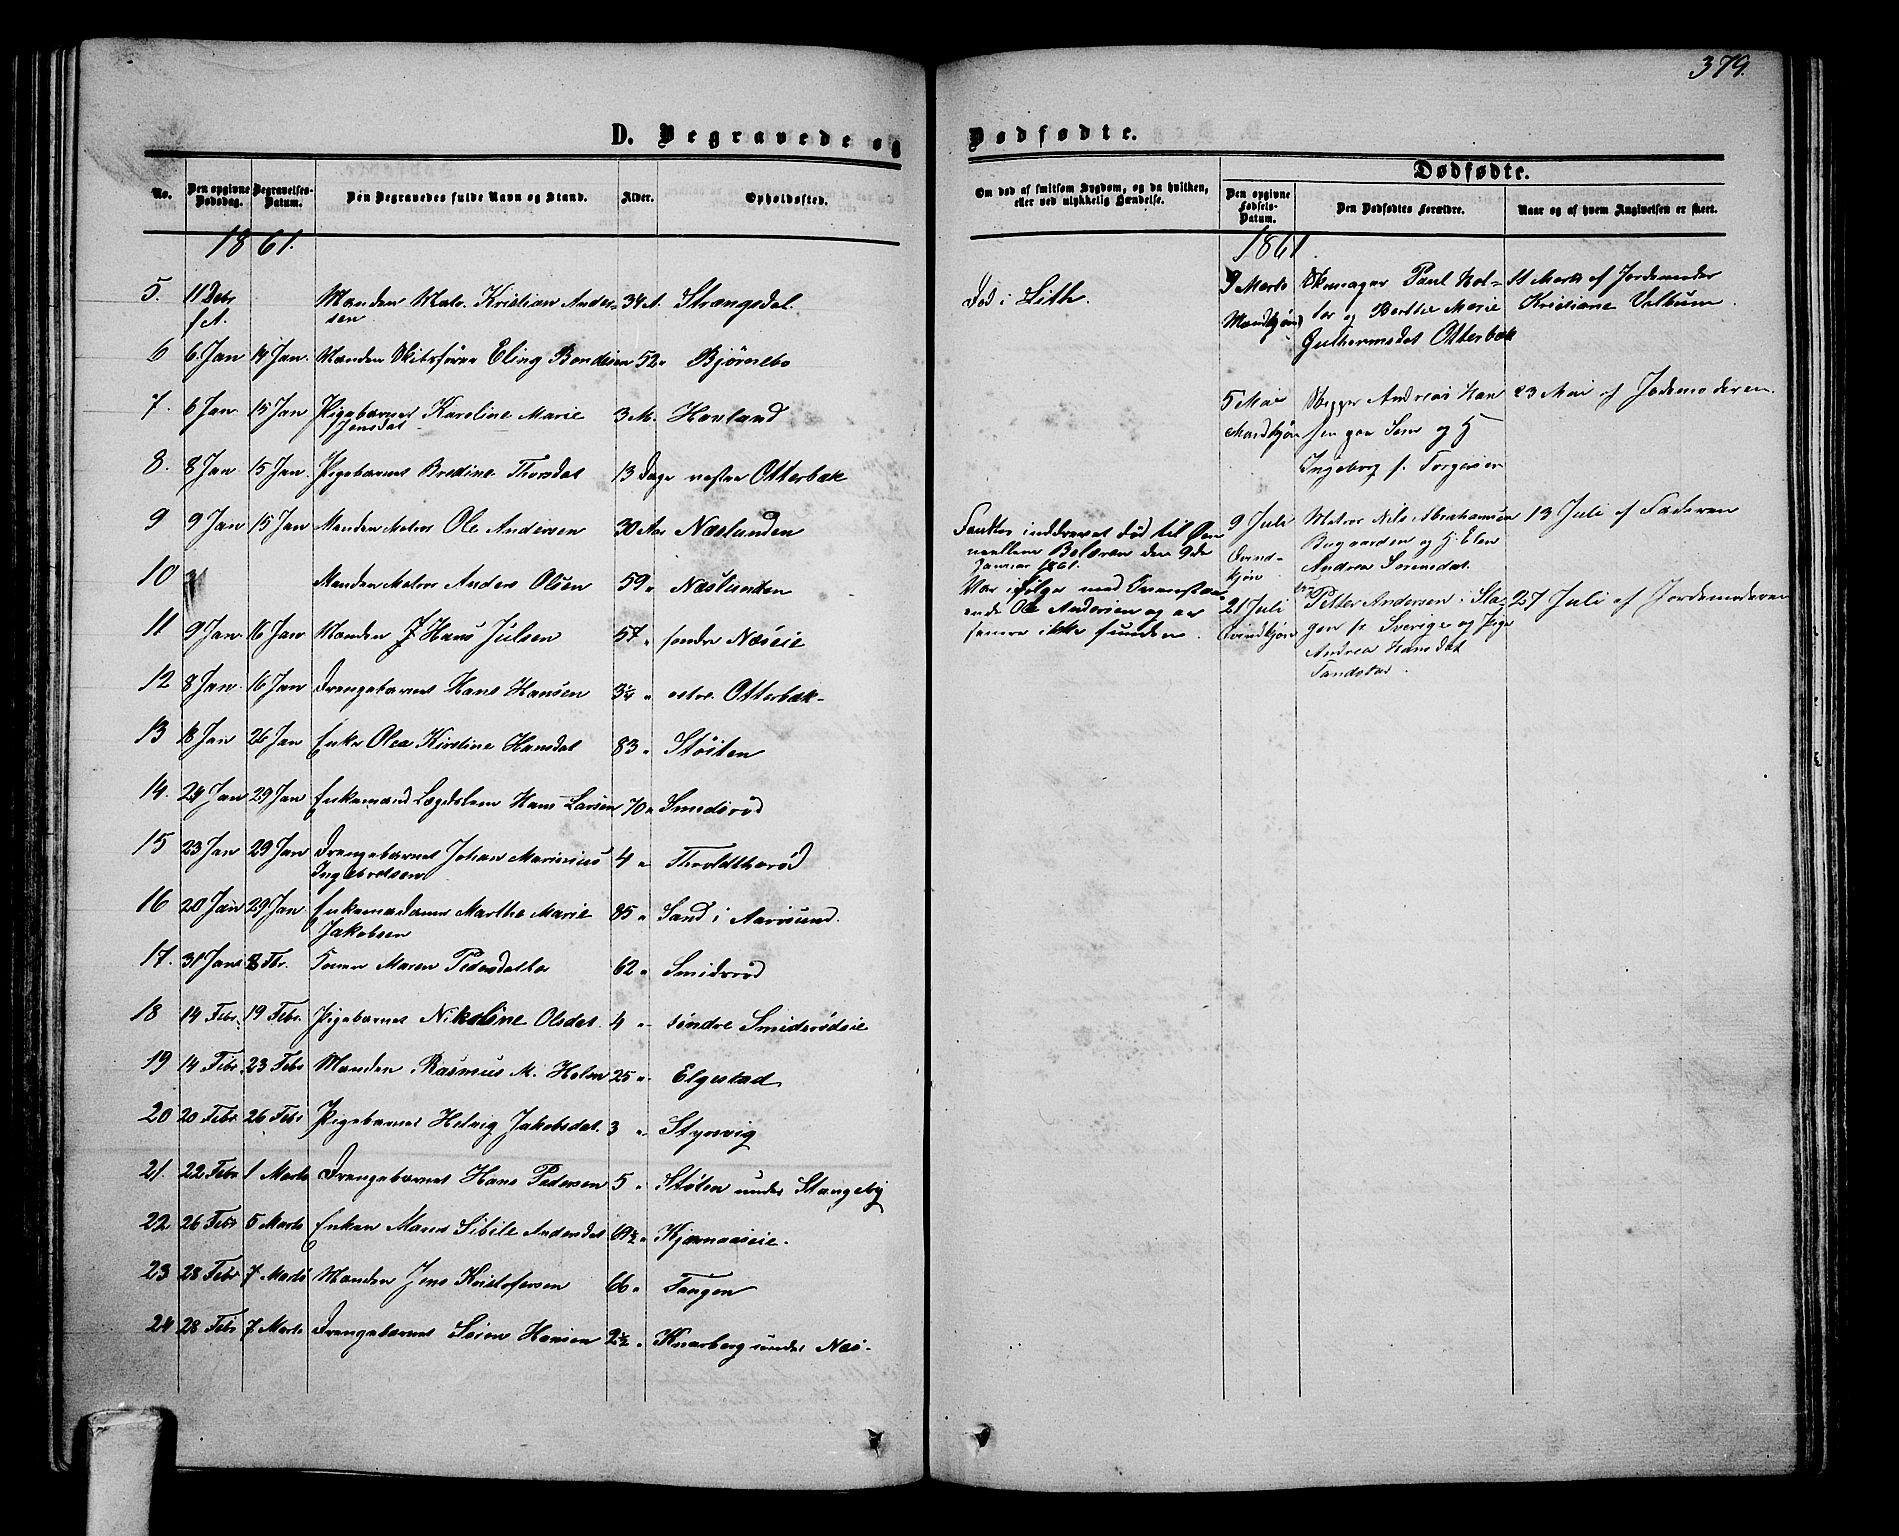 379.
D. Begravede og Dødfødte.
No. Den opgivne Dødsdag. Begravelses-Datum. Den Begravedes fulde Navn og Stand. Alder. Opholdssted.
1861.
5. 11 Debr f.A. Manden Matr. Kristian Ander- 34 A. Strængsdal
sen
6 6. Jan 14 Jan. Manden Eling Bendixen 52 " Bjørnebo
7. 6 Jan. 15 Jan Pigebarnet Karoline Marie 3 M. Havland
Jensdat
8. 8 Jan 15 Jan. Pigebarnet Bredine Thorsdat 13 Dage nestre Otterbæk
9 9 Jan 15 Jan Manden Matros Ole Andersen 30 Aar Næslanden
10 Manden Matros Anders Olsen 59 " Næslanden
11 9 Jan 16 Jan Manden Hans Julsen 57 " søndre Næseie
12 8 Jan. 16 Jan Drengebarnet Hans Hansen 3¼ " østre Otterbæk
13 18 Jan 26 Jan Enke Olea Kirstine Hansdat 83 " Støiten
14. 24 Jan 29 Jan Enkemand Lægdslem Hans Larsen 70 " Smidsrød
15 23 Jan 29 Jan Drengebarnet Johan Marinius 4 " Tholdtharød
Ingebretsen
16 20 Jan 29 Jan Enkemadame Marthe Marie 85 " Sand i Aarøsund.
Jakobsen
17. 31 Jan 8 Fbr. Maren Pedersdatter 62 " Smidsrød
18 14 Febr. 19 Febr. Pigebarnet Nikoline Olsdat. 4 " søndre Smidsrødeie
19 14 Febr. 23 Febr Manden Rasmus M. Holm 25 " Elgestad
20 20 Febr. 26 Febr Pigebarnet Helvig Jakobsdat. 3 " Styrsvig
21. 22 Febr 1 Marts Drengebarnet Hans Pedersen 5 " Støten under Stangeby
22 26 Febr 5 Marts Enken Maren Sibile Andersdat 69½ " Kjærnaaseie.
23 28 Febr 7 Marts Manden Jens Kristofersen 66 " Tangen
24 28 Febr 7 Marts Drengebarnet Søren Hansen 2½ " Knarberg under Næs.
Om død af smitsom Sygdom, og da hvilken, eller ved ulykkelig Hændelse.
Dødfødte.
Den opgivne Fødsels-Datum. Den Dødfødtes Forældre. Naar og af hvem Angivelsen er skeet.
1861
Død i Lith.
9 Marts Skomager Paul Hol- 11 Marts af Jordemoder
Mandkjøn ter og Berthe Marie Kristiane Velbum.
Guthormsdat Otterbæk
5 Mai Andreas Han 23 Mai af Jordemoderen.
Mandkjøn sen paa Sem og H
Ingeborg f. Torgersen
Fandtes inddrevet død til Øen
mellem Bolæren den 9de
Januar 1861.
9 Juli Matros Nils Abrahamsen 13 Juli af Faderen
Qvind- Bugaarden og H. Elen
kjøn Andrea Sørensdat.
Var ifølge med Ovenstaa-
ende Ole Andersen og er
senere ikke funden.
21 Juli Petter Andersen i Sla- 27 Juli af Jordemoderen
Qvindkjøn gen fr. Sverige og Pige
Andrea Hansdat